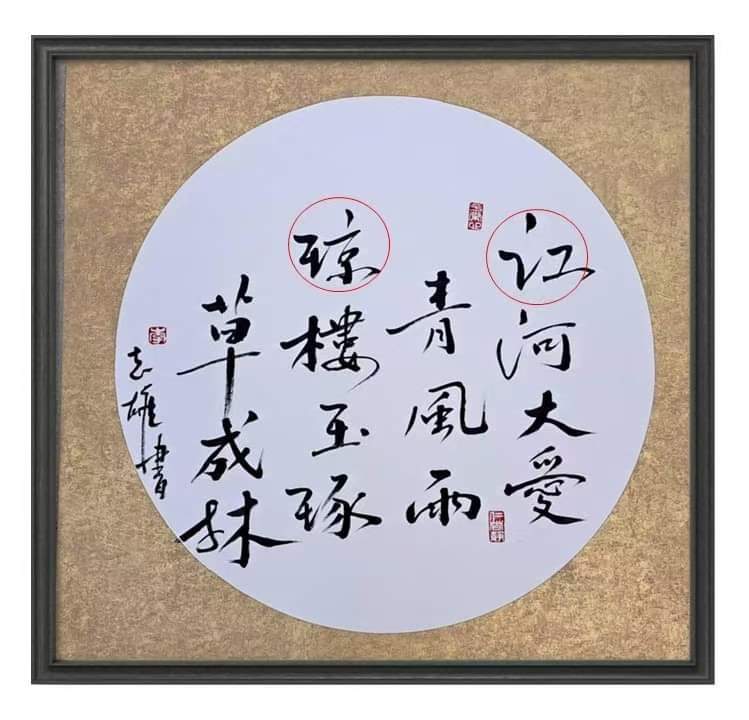 江河大愛
青風雨
琼樓玉琢
草成林
志雄書